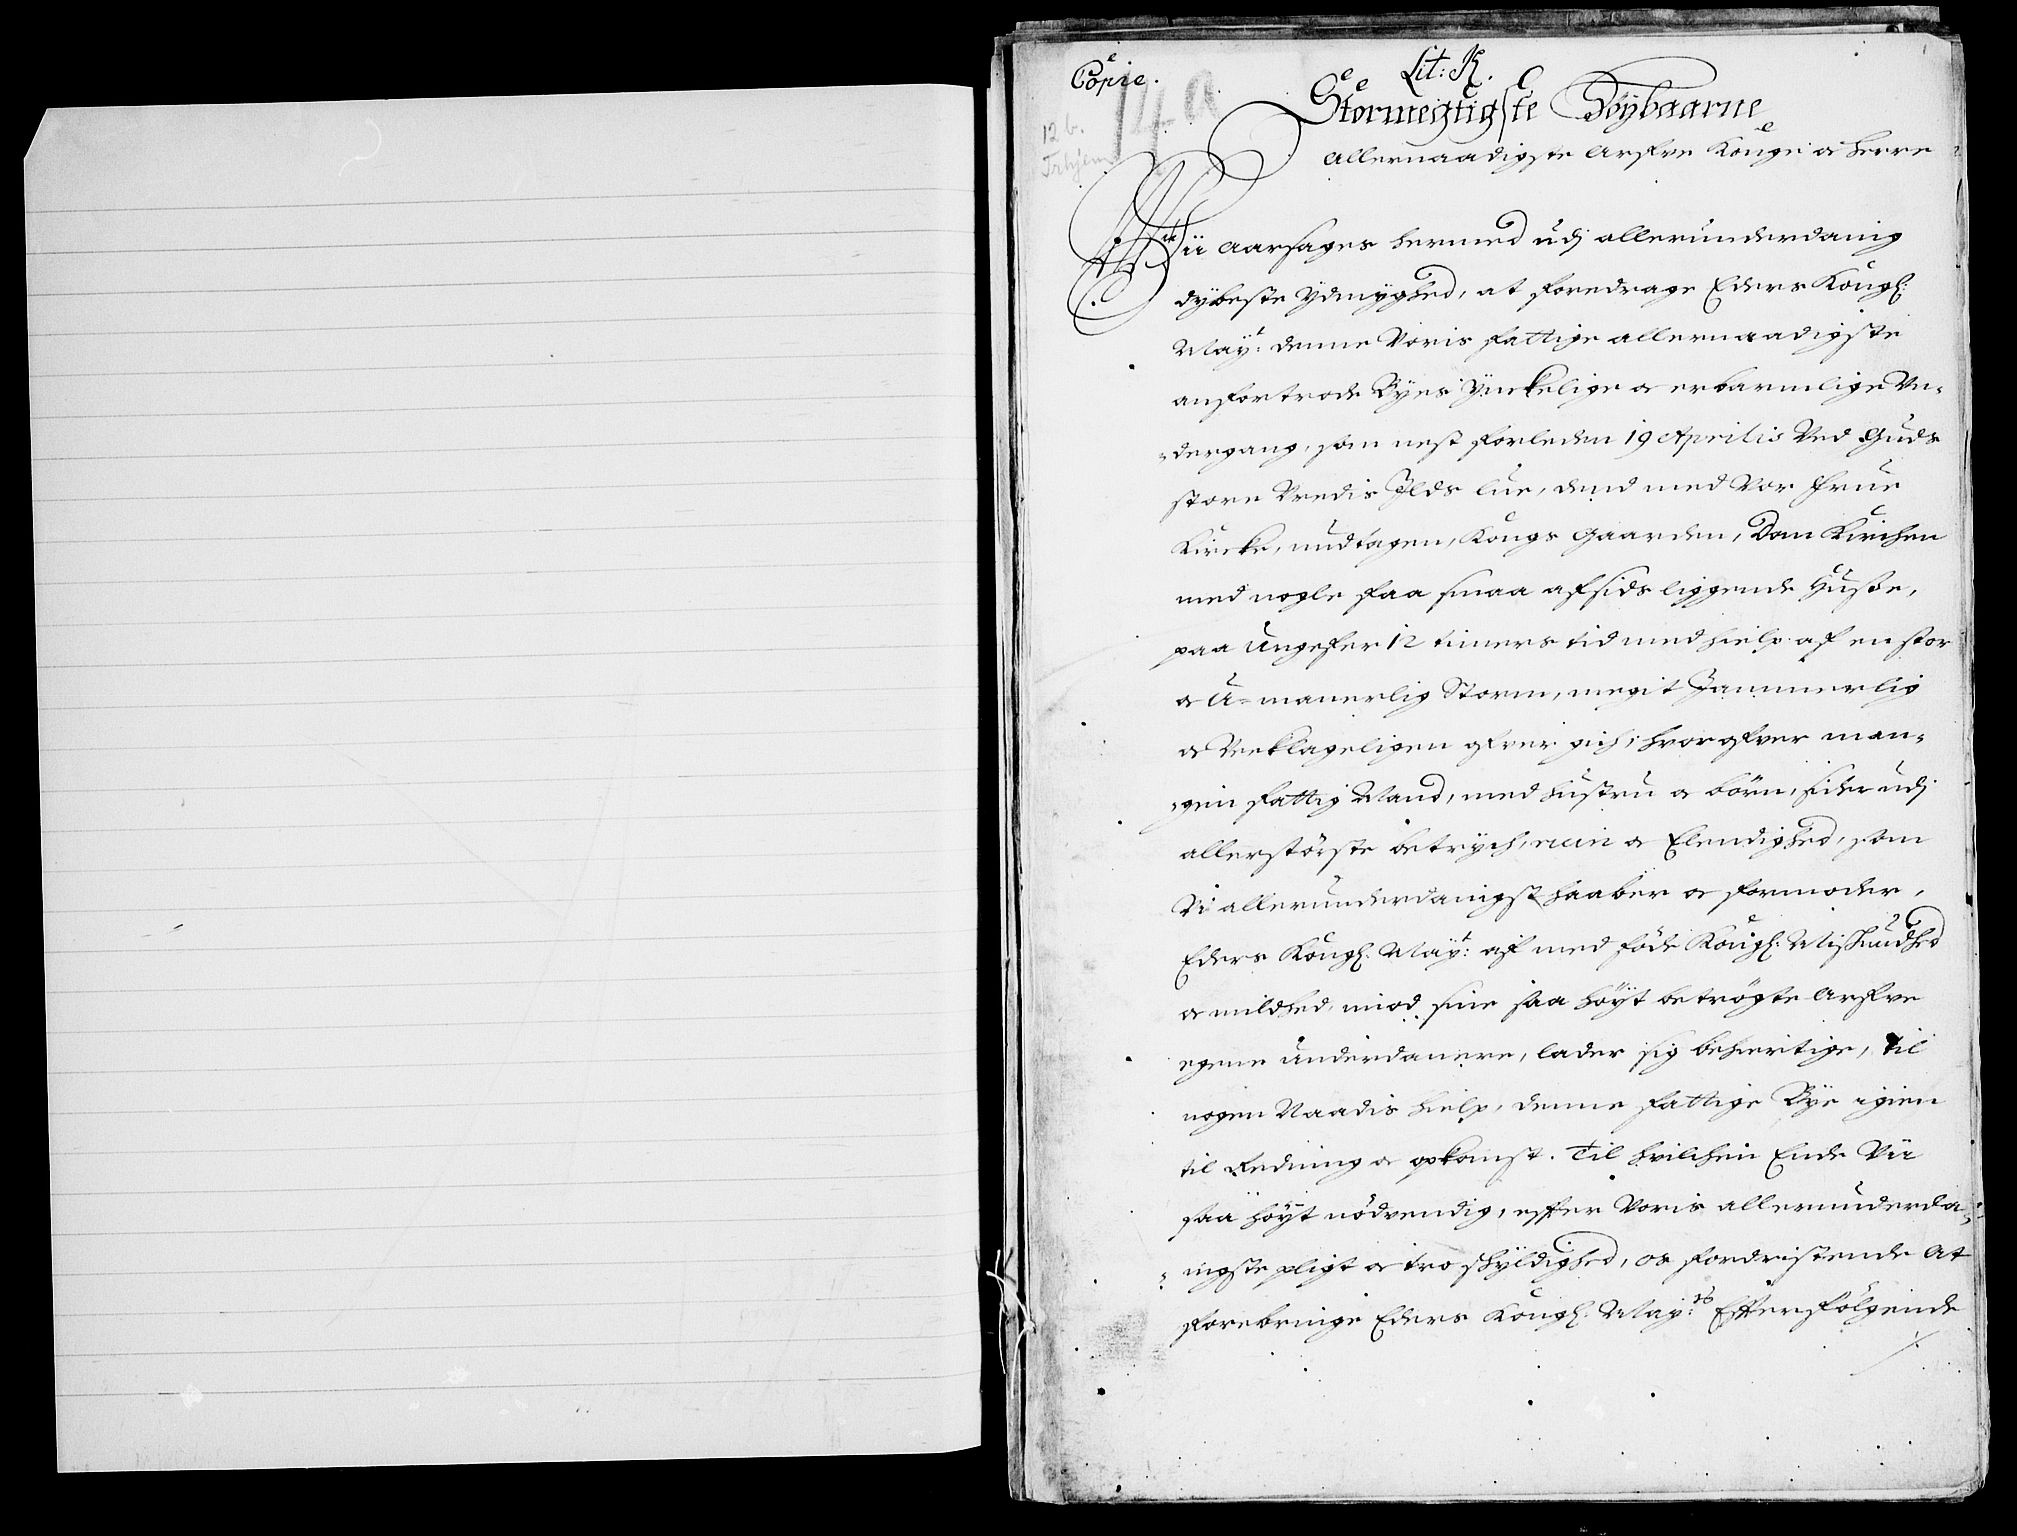 Copie.
Lit: K.
14 a
12 b.
Trhjem
Stormegtigste Høybaarne
Allernaadigste Arfve Konge og Herre
Vii aarsages hermed udj allerunderdanig
dybeste ydmyghed, at foredrage Eders Kongl:
May:t denne Voris fattige allernaadigste
anfortrode Byes Ynckelige og erbarmlige Un-
-dergang, som nest forleden 19 Aprilis Ved Guds
store Vredis Jlds lue, dend med Vor Frue
Kircke, undtagen, Kongs Gaarden, Dom Kirchen
med nogle faa smaa afsids liggende Huse,
paa Ungefer 12 timers tid med hielp af en stor
og U-manerlig Storm, megit Jammerlig
og Veklageligen ofver gich, hvorofver man-
-gen fattig Mand, med hustru og börn, sider udj
allerstörste betrych, ruin og Elendighed, som
Vi allerunderdanigst haaber og formoder,
Eders Kongl: May:t af med föde Kongl: Miskundhed
og mildhed, imod sine saa höyt betrögte Arfve
egene underdanere, lader sig behiertige, til
nogen Naadis hielp, denne fattige Bye igien
til Redning og opkomst. Til hvilchen Ende Vii
saa höyt nödvendig, effter Voris allerunderda-
-nigste pligt og tro skyldighed, os fordristende at
forebringe Eders Kongl: May:ts Effterfölgende